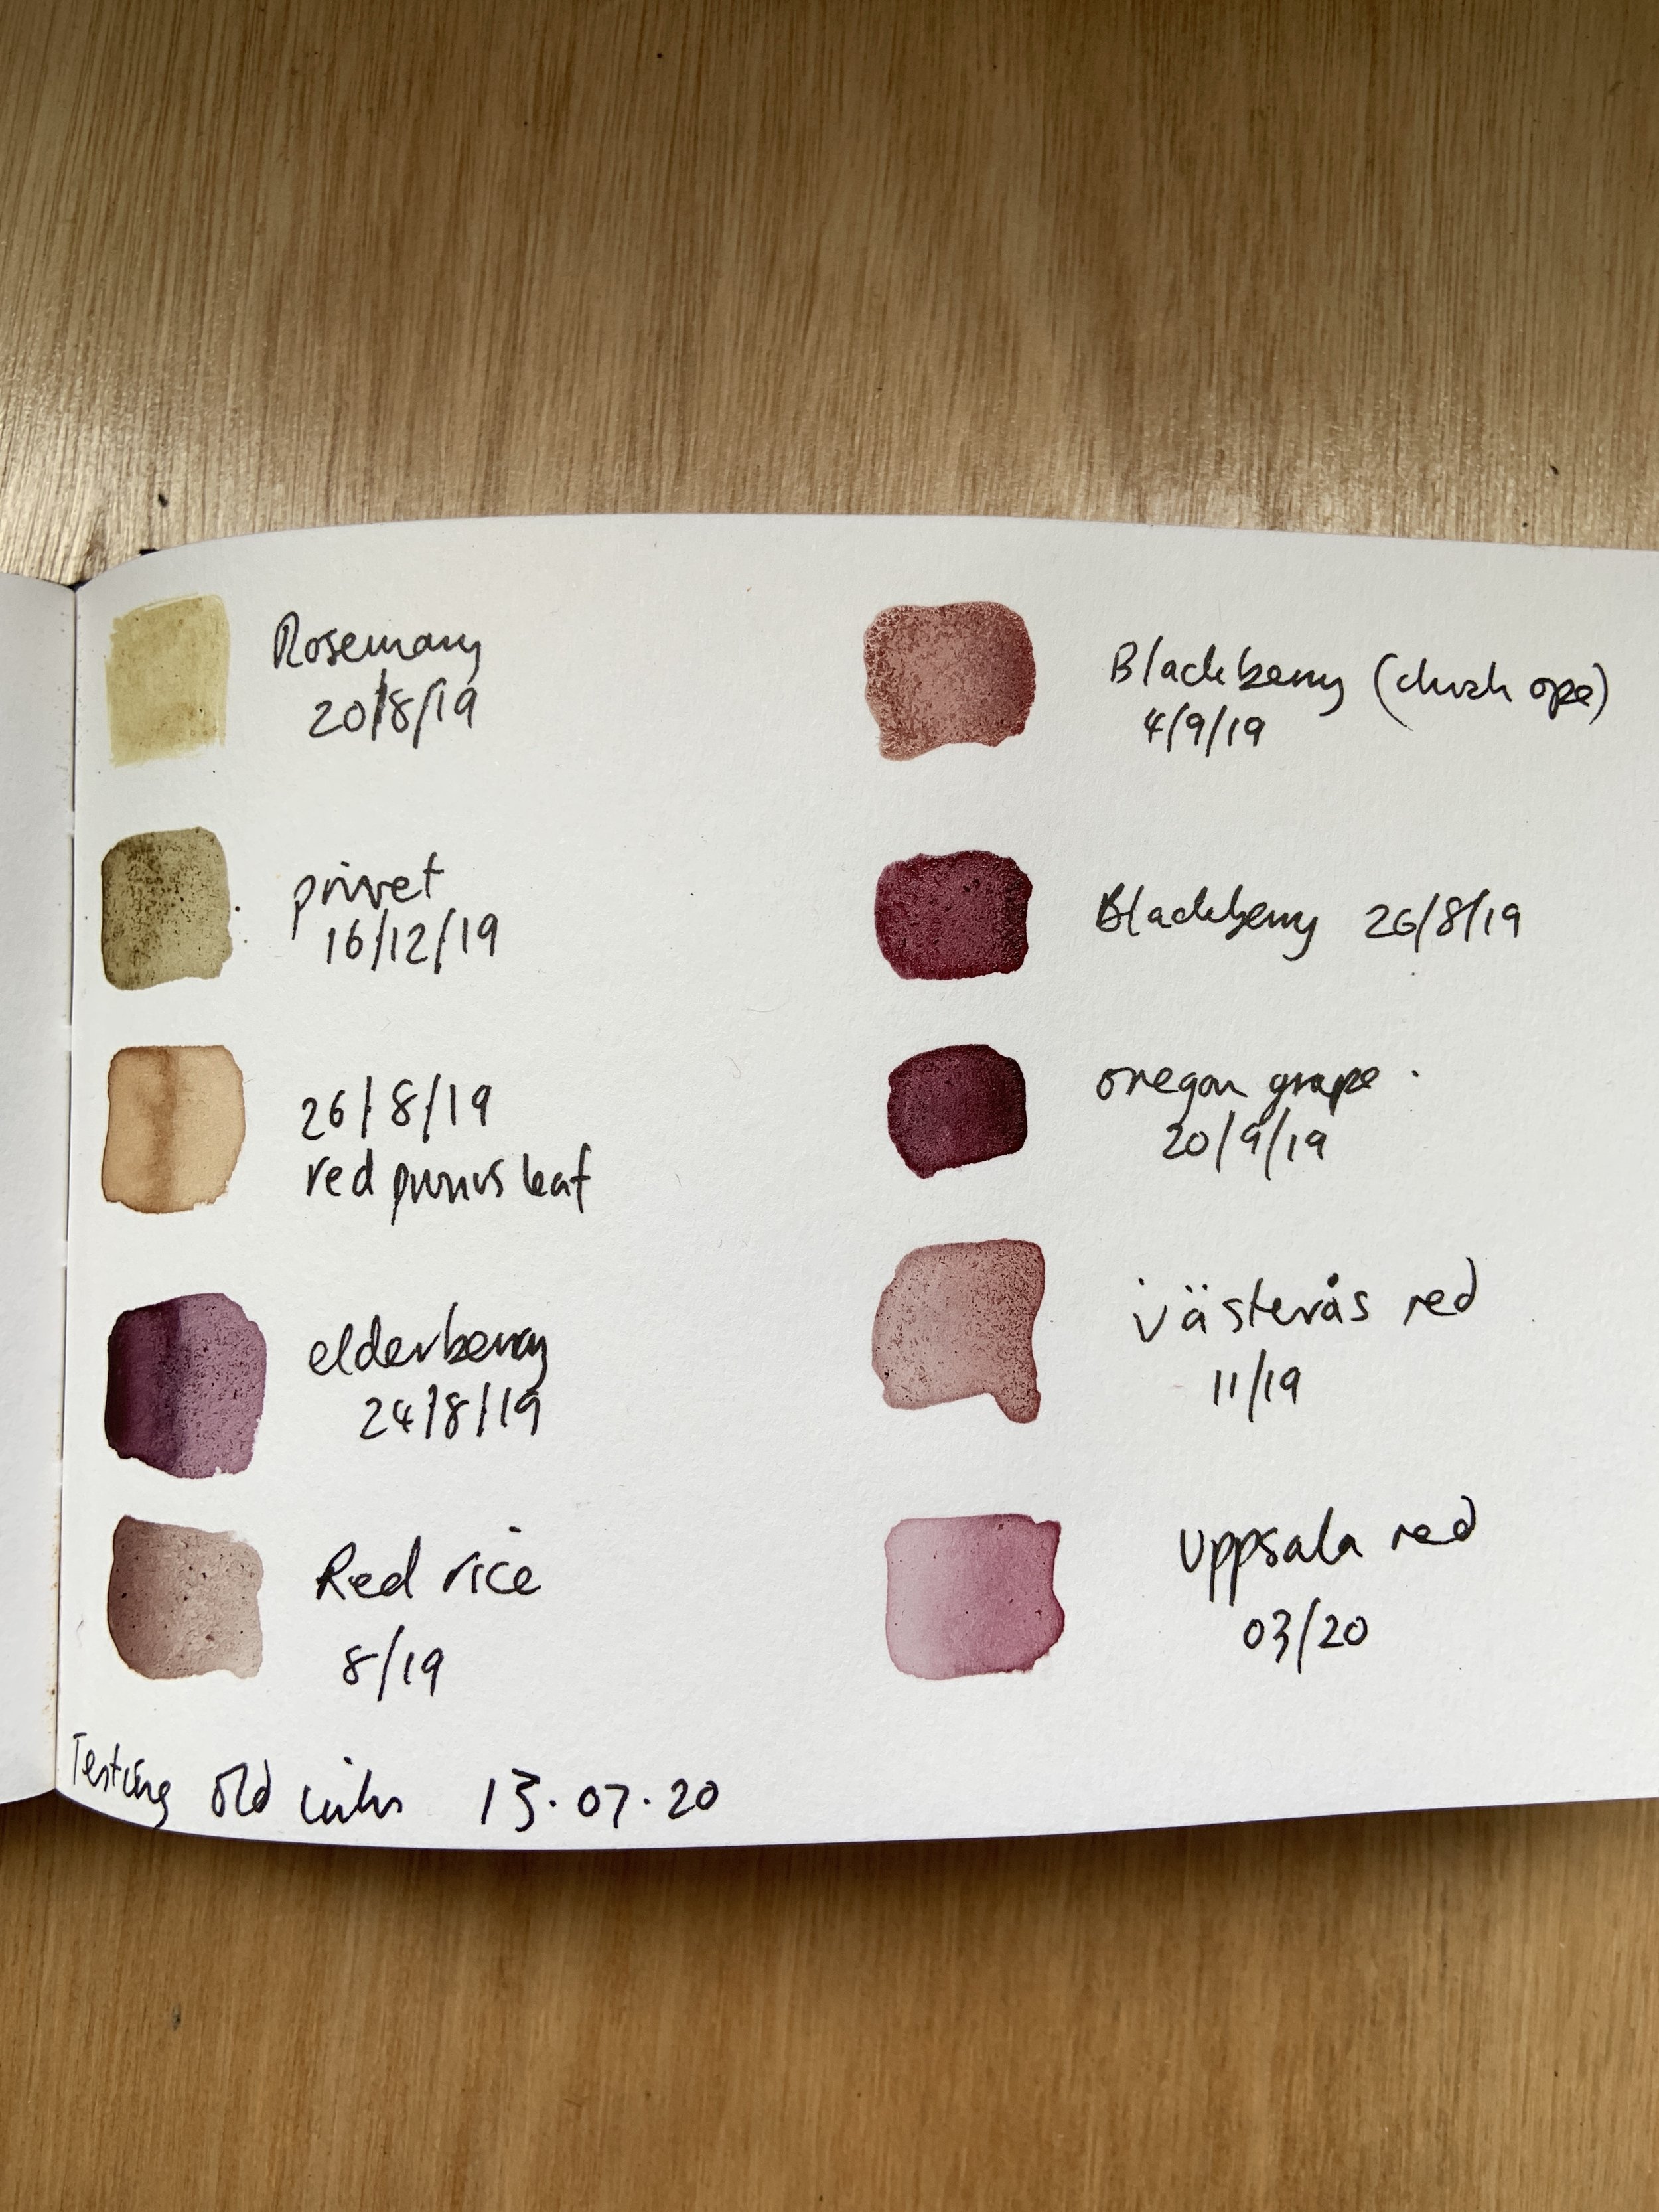 Rosemary
20/8/19
privet
16/12/19
26/8/19
red prunus leaf
elderberry
24/8/19
Red rice
8/19
Blackberry (church ope)
4/9/19
Blackberry 26/8/19
oregon grape
20/9/19
västerås red
11/19
Uppsala red
03/20
Testing old inks 13.07.20